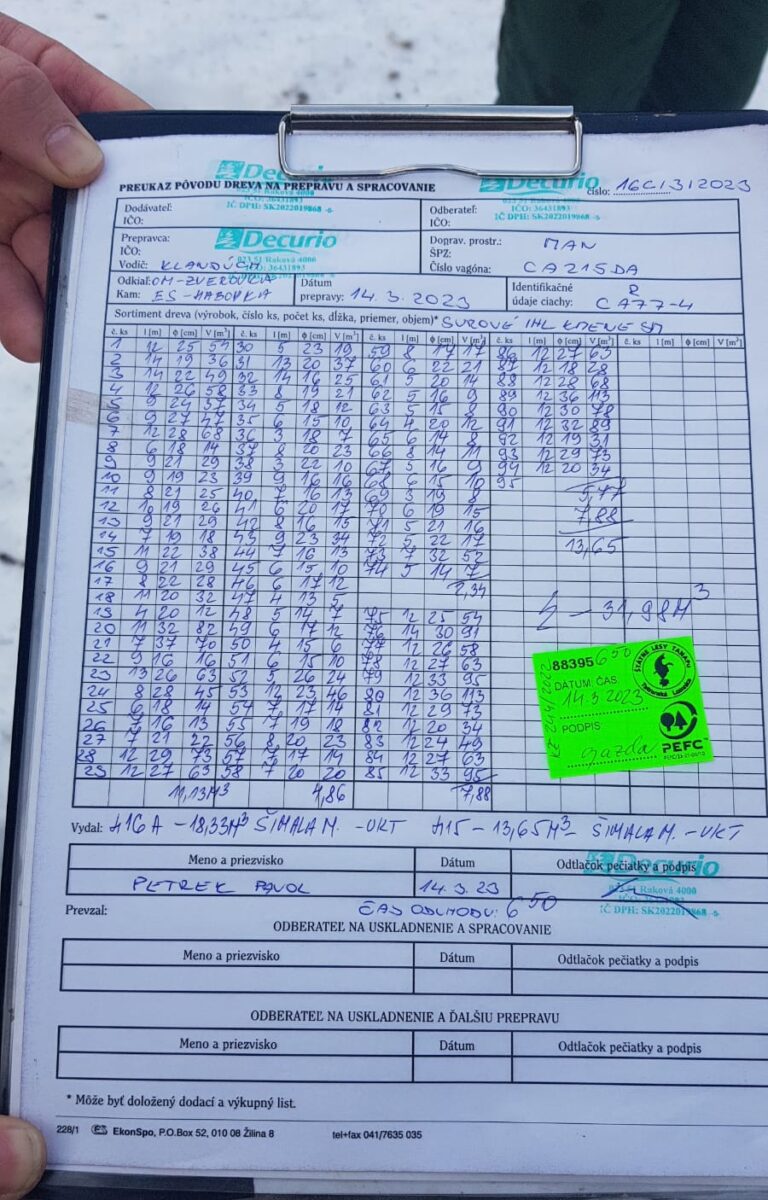 Decurio
Decurio
PREUKAZ PÔVODU DREVA NA PREPRAVU A SPRACOVANIE
číslo: 16C/3/2023
023 51 Raková 4000
IČO: 36431893
IČ DPH: SK2022019868
Dodávateľ:
IČO:
Odberateľ:
IČO:
IČO: 36431893
IČ DPH: SK2022019868
Prepravca:
IČO:
Vodič: KLANDÚCH
Decurio
023 51 Raková 4000
IČO: 36431893
Doprav. prostr.: MAN
ŠPZ:
Číslo vagóna: CA215DA
Odkiaľ: OM-ZVEROVKA
Kam: ES-HABOVKA
Dátum
prepravy: 14.3.2023
Identifikačné
údaje ciachy: R CA77-4
Sortiment dreva (výrobok, číslo ks, počet ks, dĺžka, priemer, objem)* SUROVÉ IHL KMENE SM
č. ks l [m] ϕ [cm] V [m³] č. ks l [m] ϕ [cm] V [m³] č. ks l [m] ϕ [cm] V [m³] č. ks l [m] ϕ [cm] V [m³] č. ks l [m] ϕ [cm] V [m³]
1 12 25 54 30 5 23 19 59 8 17 17 86 12 27 63
2 14 19 36 31 13 20 37 60 6 22 21 87 12 18 28
3 14 22 49 32 14 16 25 61 5 20 14 88 12 28 68
4 12 26 58 33 8 19 21 62 5 16 9 89 12 36 113
5 9 24 37 34 5 18 12 63 5 15 8 90 12 30 78
6 9 27 47 35 6 15 10 64 4 20 12 91 12 32 89
7 12 28 68 36 3 18 7 65 6 14 8 92 12 19 31
8 6 18 14 37 8 20 23 66 8 14 11 93 12 29 73
9 9 21 29 38 3 22 10 67 5 16 9 94 12 20 34
10 9 19 23 39 9 16 16 68 6 15 10 95
11 8 21 25 40 7 16 13 69 3 19 8 5,77
12 10 19 26 41 6 20 17 70 6 19 15 7,88
13 9 21 29 42 8 16 15 71 5 21 16
14 7 19 18 43 9 23 34 72 5 22 17 13,65
15 11 22 38 44 7 16 13 73 7 32 52
16 9 21 29 45 6 15 10 74 5 14 7
17 8 22 28 46 6 17 12 2,34
18 11 20 32 47 4 13 5
19 4 20 12 48 5 14 7 75 12 25 54
Σ – 31,98M³
20 11 32 82 49 6 17 12 76 14 30 91
21 7 37 70 50 4 15 6 77 12 26 58
22 9 16 16 51 6 15 10 78 12 27 63
23 13 26 63 52 5 26 24 79 12 33 95
24 8 28 45 53 12 23 46 80 12 36 113
25 6 18 14 54 7 17 14 81 12 29 73
26 7 16 13 55 7 19 18 82 12 20 34
27 7 21 22 56 8 20 23 83 12 24 49
28 12 29 73 57 8 17 14 84 12 27 63
29 12 27 63 58 7 20 20 85 12 33 95
11,13M³ 4,86 7,88
88395 650
DÁTUM, ČAS.
14.3.2023
PODPIS
gazda
ŠTÁTNE LESY TANAPU
Tatranská Lomnica
PEFC
Vydal: 416A – 18,33M³ ŠIMALA M. -VKT 415 – 13,65M³ – ŠIMALA M. -VKT
Meno a priezvisko Dátum Odtlačok pečiatky a podpis
PETREK PAVOL 14.3.23
Decurio
023 51 Raková 4000
IČ DPH: SK2022019868
Prevzal: ČAS ODCHODU: 6 50
ODBERATEĽ NA USKLADNENIE A SPRACOVANIE
Meno a priezvisko Dátum Odtlačok pečiatky a podpis
ODBERATEĽ NA USKLADNENIE A ĎALŠIU PREPRAVU
Meno a priezvisko Dátum Odtlačok pečiatky a podpis
* Môže byť doložený dodací a výkupný list.
228/1 EkonSpo, P.O.Box 52, 010 08 Žilina 8 tel+fax 041/7635 035